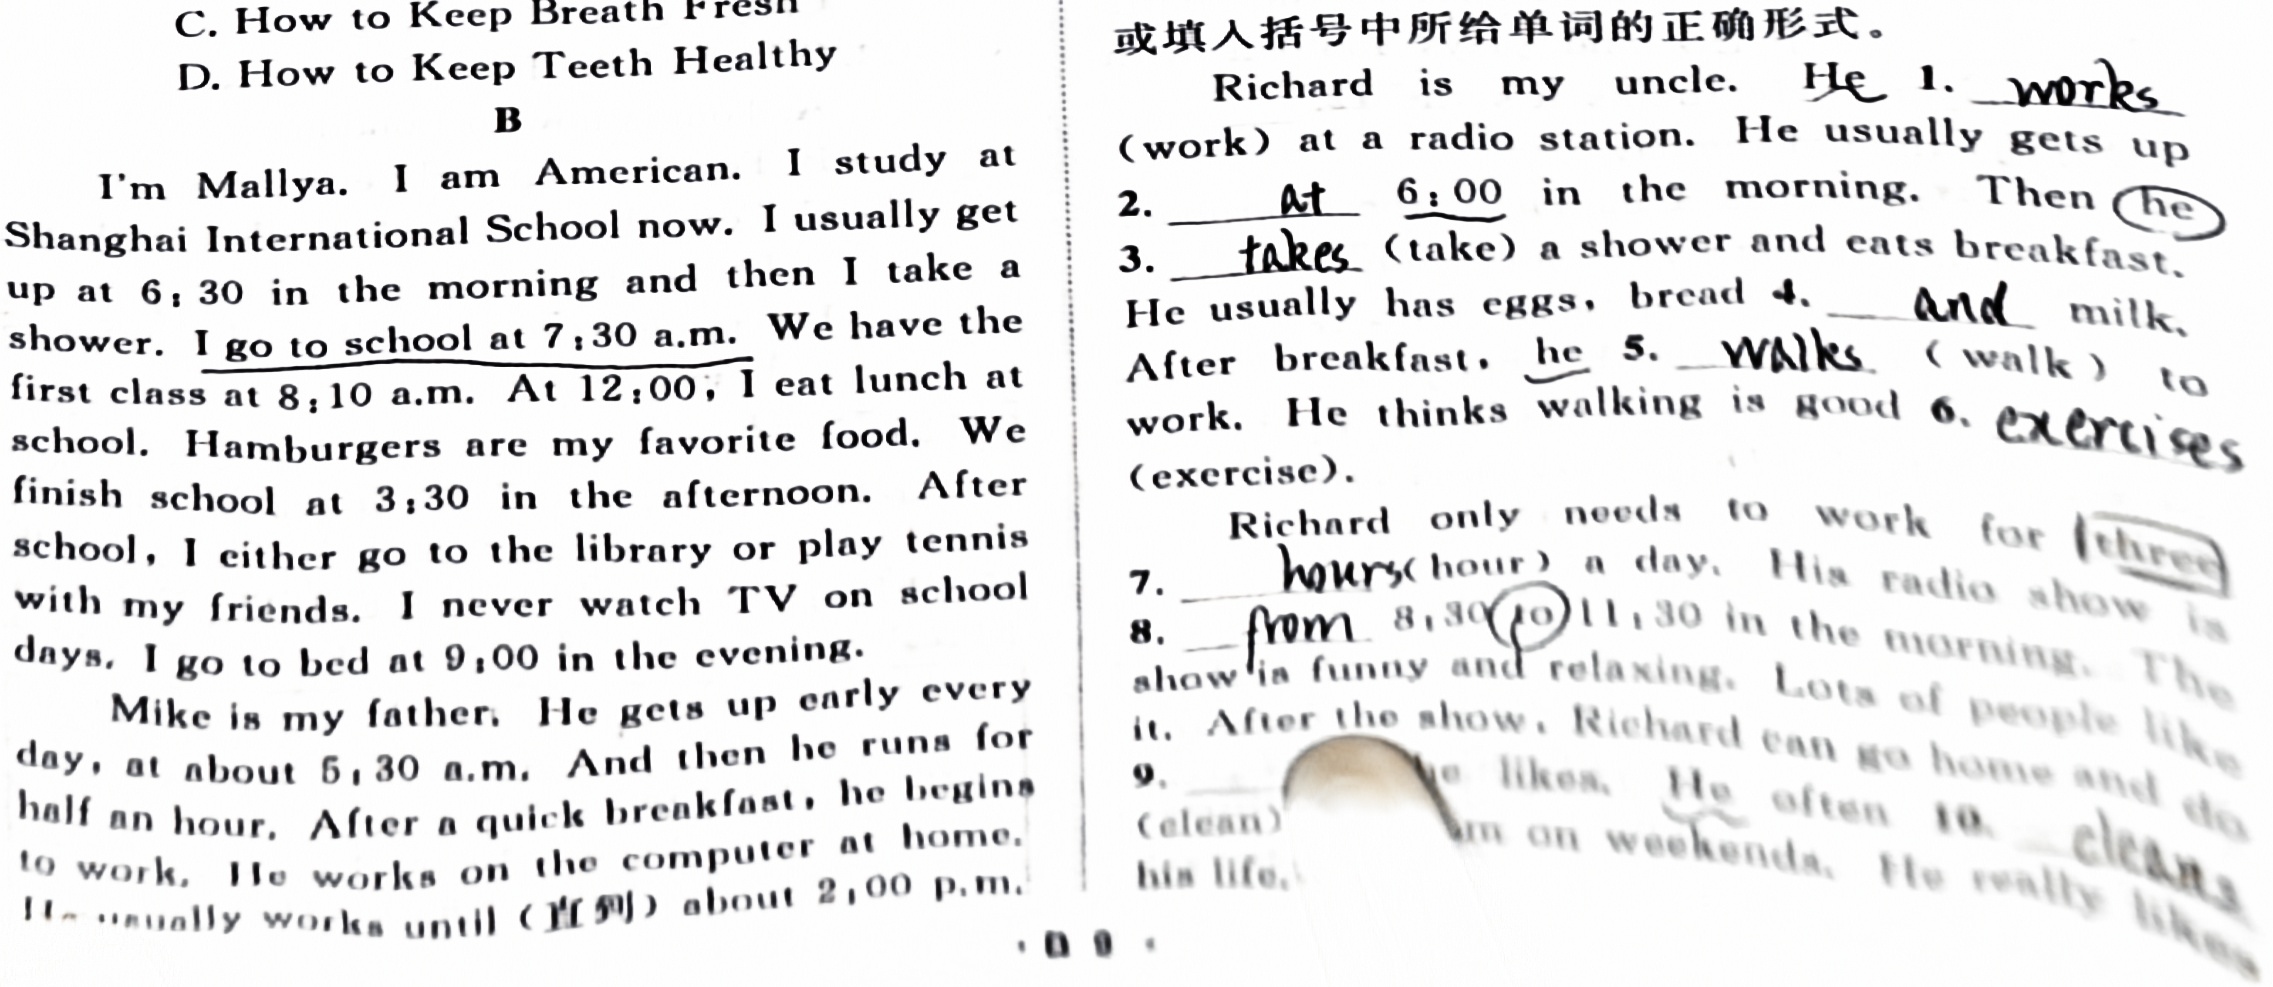 C. How to Keep Breath Fresh
D. How to Keep Teeth Healthy
B
I'm Mallya. I am American. I study at
Shanghai International School now. I usually get
up at 6:30 in the morning and then I take a
shower. I go to school at 7:30 a.m. We have the
first class at 8:10 a.m. At 12:00, I eat lunch at
school. Hamburgers are my favorite food. We
finish school at 3:30 in the afternoon. After
school, I either go to the library or play tennis
with my friends. I never watch TV on school
days. I go to bed at 9:00 in the evening.
Mike is my father. He gets up early every
day, at about 5:30 a.m. And then he runs for
half an hour. After a quick breakfast, he begins
to work. He works on the computer at home.
He usually works until (直到) about 2:00 p.m.
或填入括号中所给单词的正确形式。
Richard is my uncle. He 1. works
(work) at a radio station. He usually gets up
2. at 6:00 in the morning. Then he
3. takes (take) a shower and eats breakfast.
He usually has eggs, bread 4. and milk.
After breakfast, he 5. walks (walk) to
work. He thinks walking is good 6. exercises
(exercise).
Richard only needs to work for three
7. hours (hour) a day. His radio show is
8. from 8:30 to 11:30 in the morning. The
show is funny and relaxing. Lots of people like
it. After the show, Richard can go home and do
9. he likes. He often 10. cleans
(clean) on weekends. He really likes
his life.